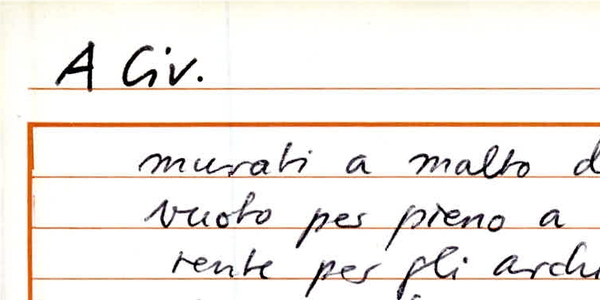 A Civ.
murati a malto d
vuoto per pieno a
rente per gli archi